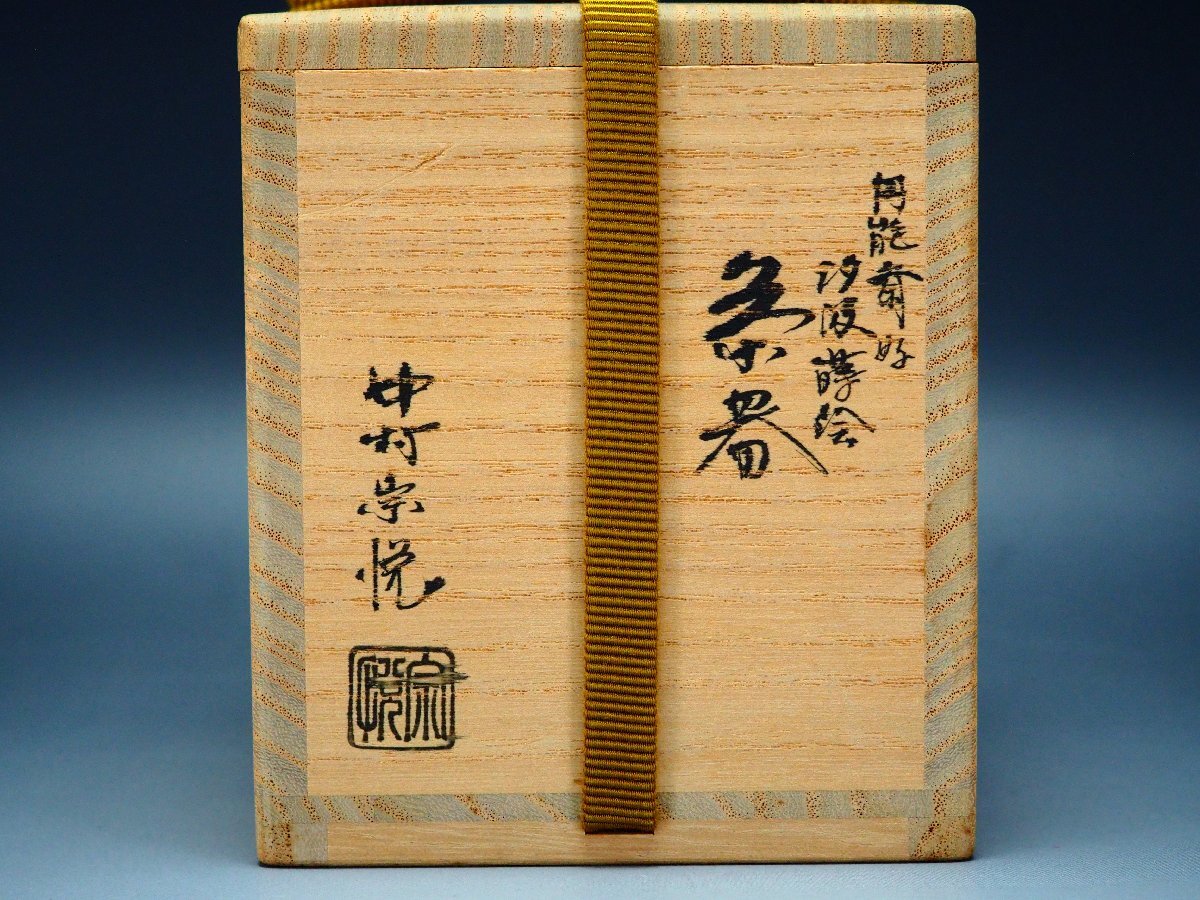 円能斎好
汐波蒔絵
茶器
中村宗悦
宗悦